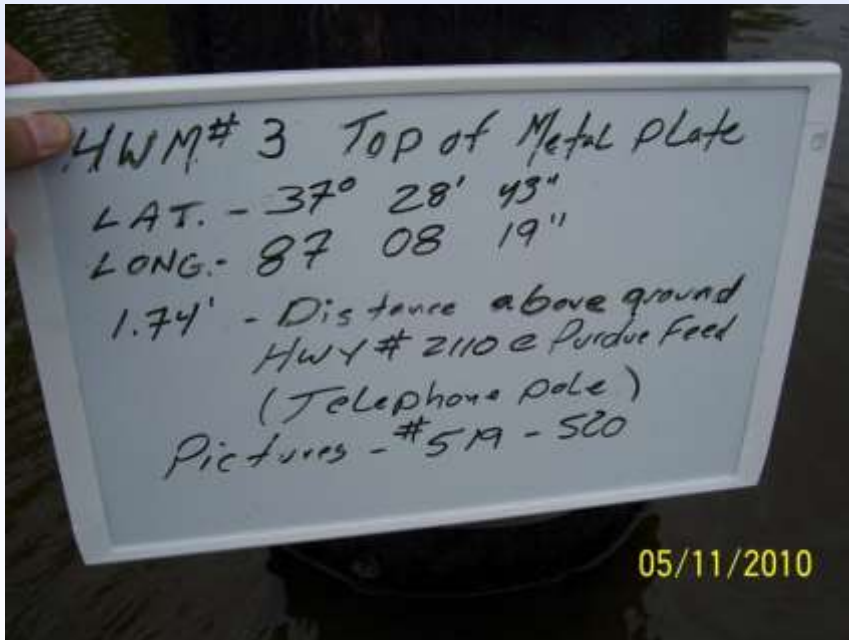 HWM# 3 Top of Metal Plate
LAT. - 37° 28' 43"
LONG.- 87 08 19"
1.74' - Distance above ground
HWY # 2110 @ Purdue Feed
(Telephone Pole)
Pictures - #519 - 520
05/11/2010